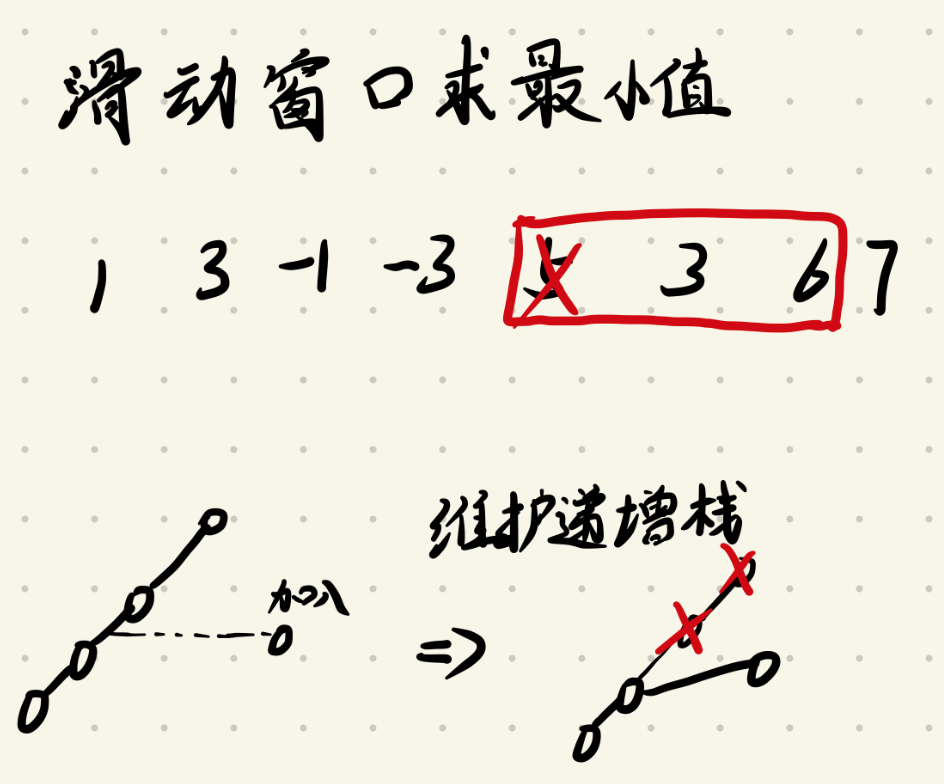 滑动窗口求最小值
1 3 -1 -3 5 3 6 7
维护递增栈
加入
=>